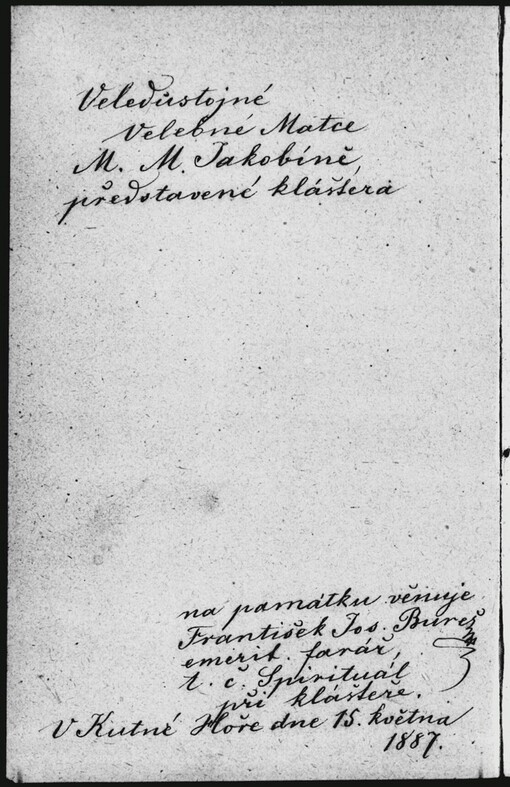 Veledůstojné
Velebné Matce
M. M. Jakobíně,
představené kláštera
na památku věnuje
František Jos. Bureš
emerit. farář,
t. č. Spirituál
při klášteře.
V Kutné Hoře dne 15. května
1887.